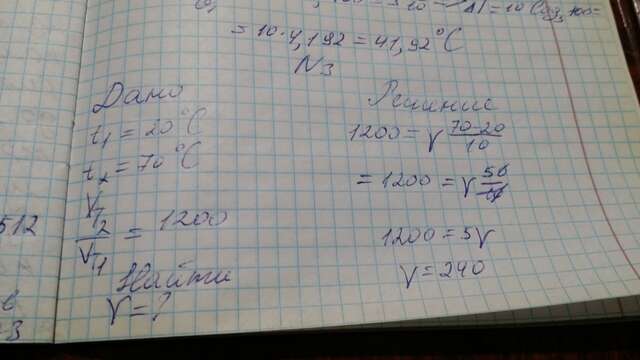 = 10·4,192 = 41,92°C
N3
Дано
t₁ = 20°C
t₂ = 70°C
V_T₂ / V_T₁ = 1200
Найти
γ = ?
Решение
1200 = γ (70-20)/10
= 1200 = γ 50/10
1200 = 5γ
γ = 240
512